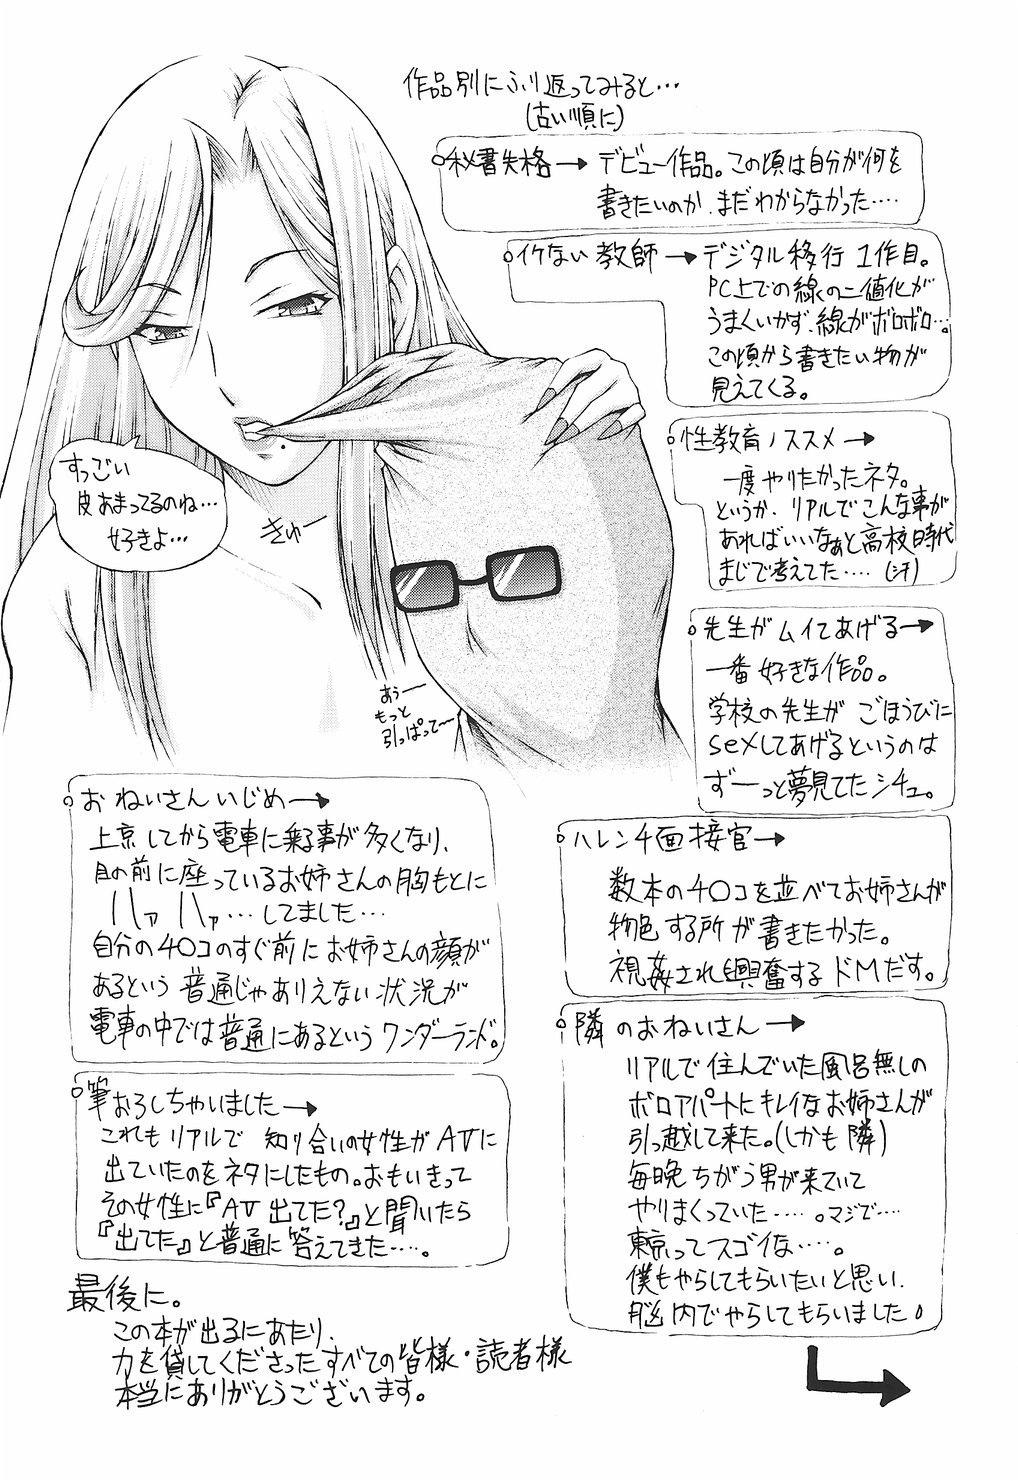 作品別にふり返ってみると…
(古い順に)
秘書失格→ デビュー作品。この頃は自分が何を
書きたいのか、まだわからなかった……
イケない教師→デジタル移行1作目。
PC上での線の二値化が
うまくいかず、線がボロボロ…。
この頃から書きたい物が
見えてくる。
性教育ノススメ→
一度やりたかったネタ。
というか、リアルでこんな事が
あればいいなぁと高校時代
まじで考えてた…… (汗)
先生がムイてあげる→
一番好きな作品。
学校の先生が ごほうびに
sexしてあげるというのは
ずーっと夢見てたシチュ。
すっごい
皮あまってるのね…
好きよ…
きゅー
あぅー
もっと
引っぱって〜
おねいさんいじめ→
上京してから電車に乗る事が多くなり、
目の前に座っているお姉さんの胸もとに
ハァ ハァ…してました…
自分のチ○コのすぐ前にお姉さんの顔が
あるという 普通じゃありえない状況が
電車の中では普通にあるというワンダーランド。
筆おろしちゃいました→
これもリアルで 知り合いの女性がAVに
出ていたのをネタにしたもの。おもいきって
その女性に『AV出てた?』と聞いたら
『出てた』と普通に答えてきた……。
ハレンチ面接官→
数本のチ○コを並べてお姉さんが
物色する所が書きたかった。
視姦され興奮するドMだす。
隣のおねいさん→
リアルで住んでいた風呂無しの
ボロアパートにキレイなお姉さんが
引っ越して来た。(しかも隣)
毎晩ちがう男が来ていて
やりまくっていた……。マジで…
東京ってスゴイな……。
僕もやらしてもらいたいと思い、
脳内でやらしてもらいました。
最後に。
この本が出るにあたり、
力を貸してくださったすべての皆様・読者様
本当にありがとうございます。